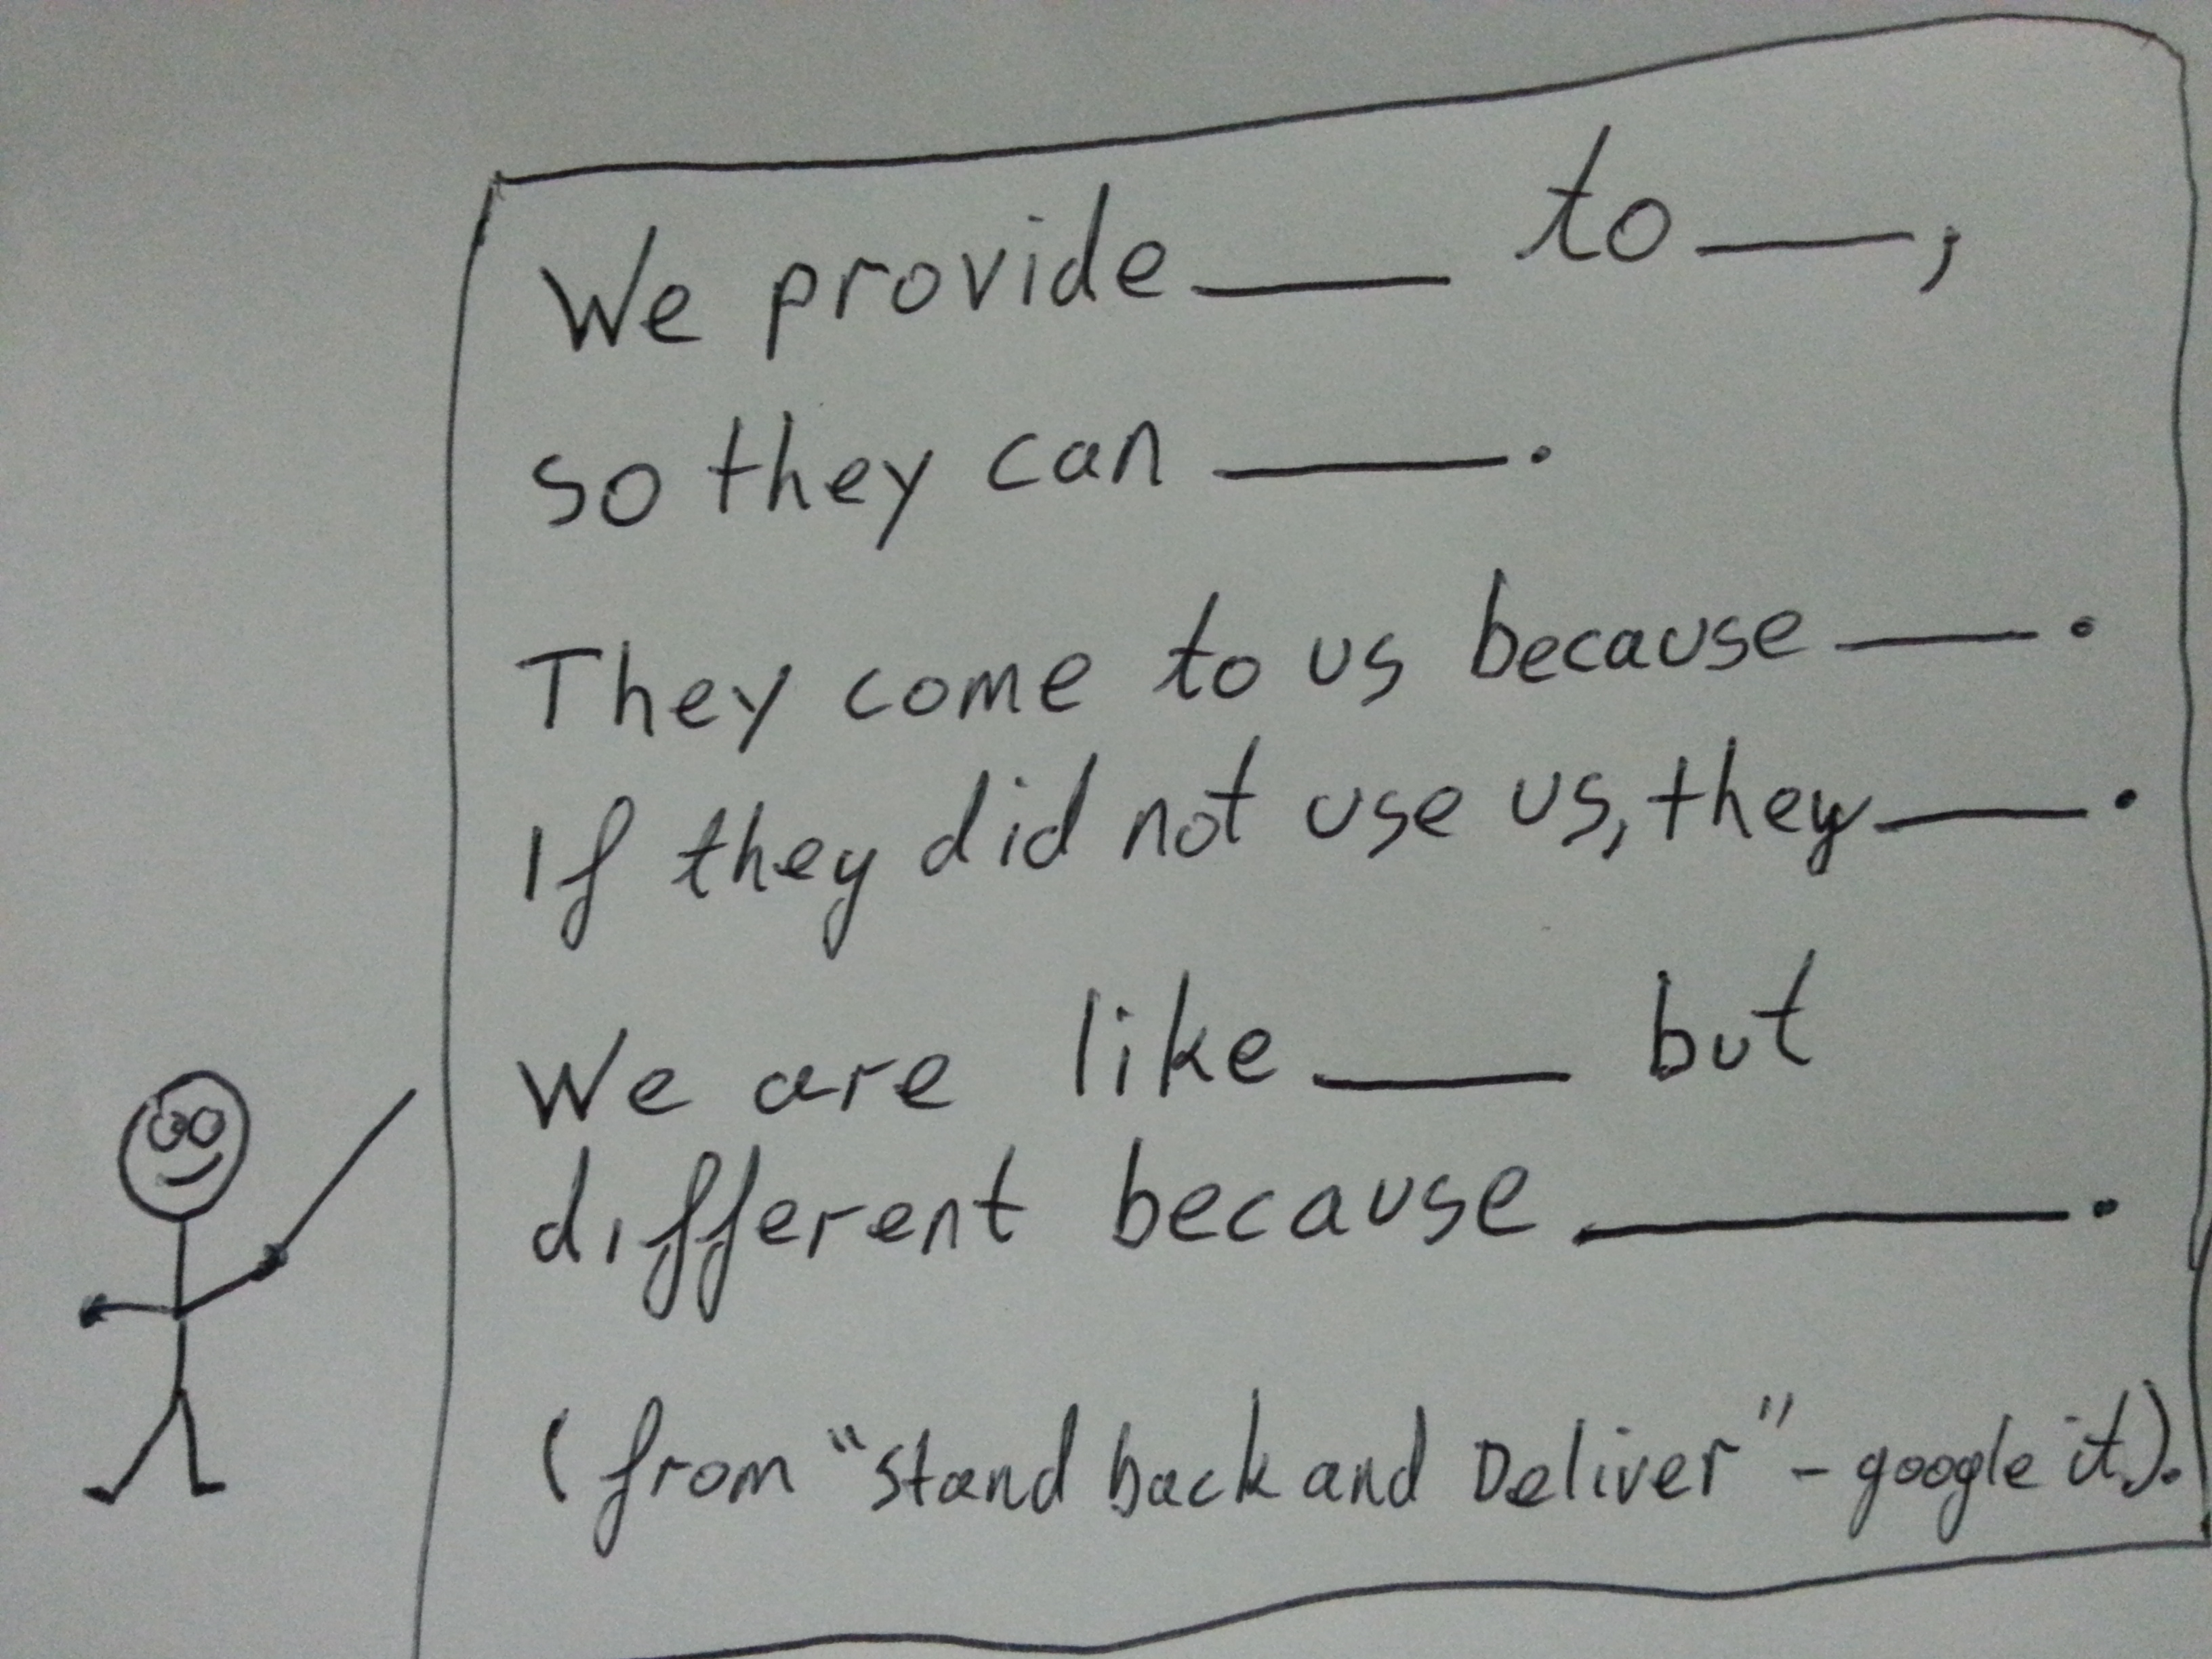 We provide ____ to ____,
so they can ____.
They come to us because ____.
If they did not use us, they ____.
We are like ____ but
different because ____.
(from "stand back and Deliver" - google it).